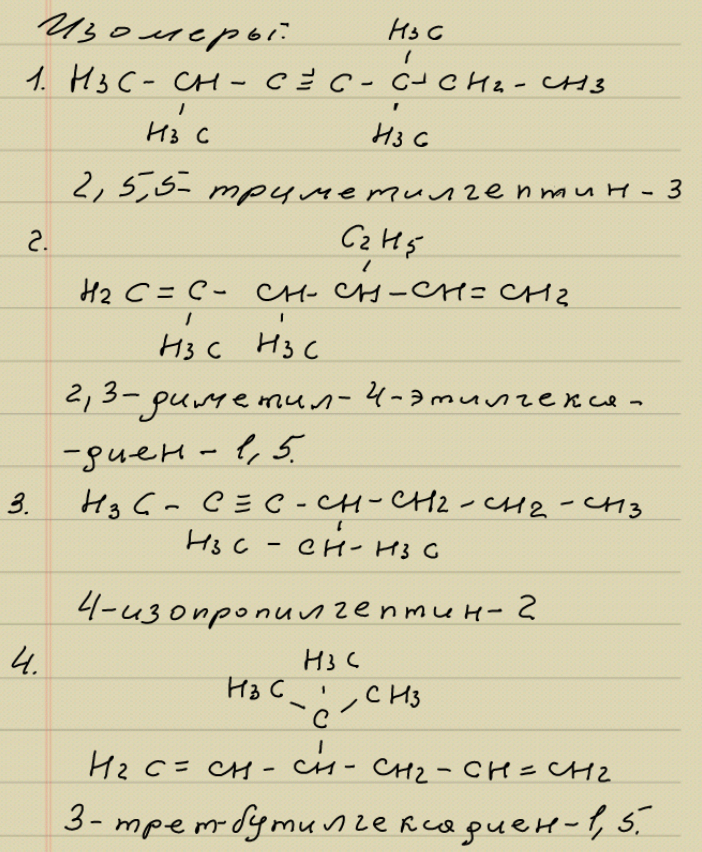 Изомеры:
H3C
1. H3C - CH - C ≡ C - C - CH2 - CH3
H3C H3C
2, 5, 5 - триметилгептин - 3
2. C2H5
H2C = C - CH - CH - CH = CH2
H3C H3C
2, 3 - диметил - 4 - этилгекса -
- диен - 1, 5.
3. H3C - C ≡ C - CH - CH2 - CH2 - CH3
H3C - CH - H3C
4 - изопропилгептин - 2
4. H3C
H3C CH3
C
H2C = CH - CH - CH2 - CH = CH2
3 - трет-бутилгексадиен - 1, 5.